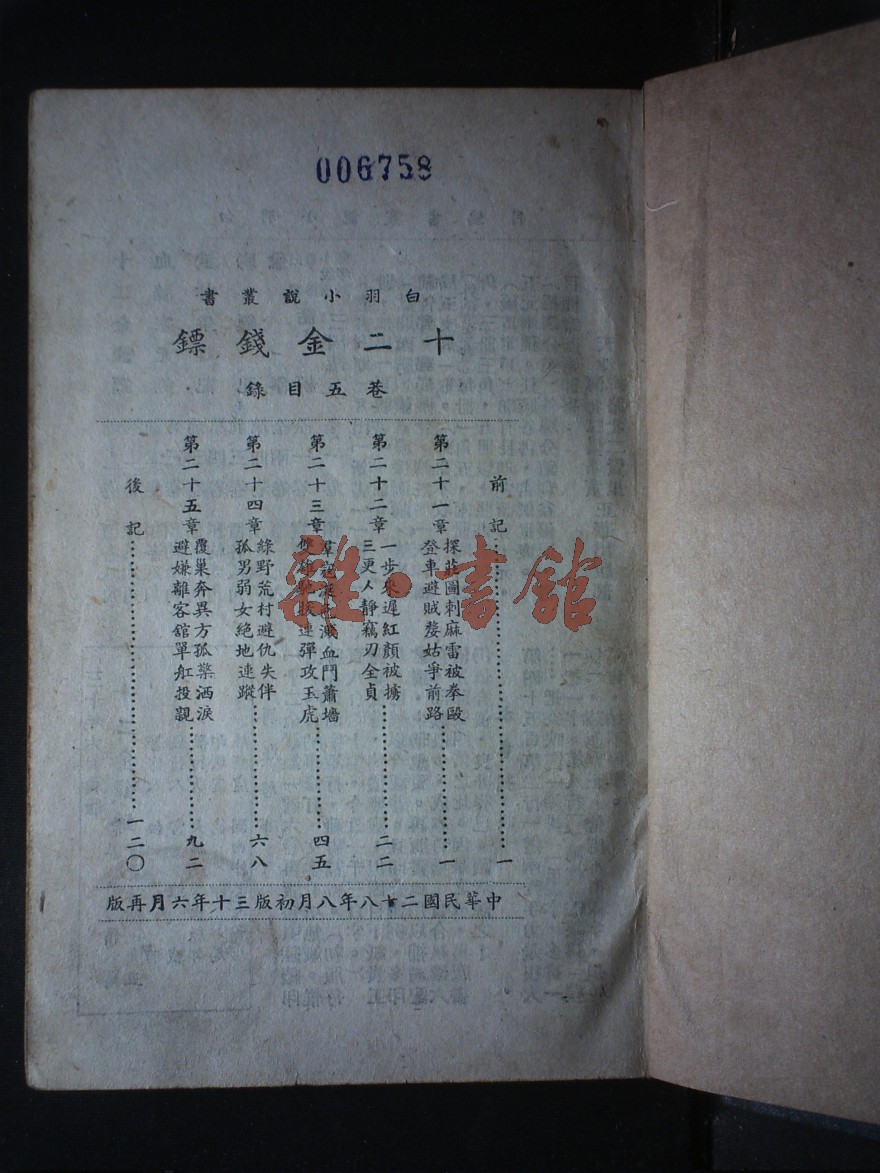 006758
白羽小說叢書
十二金錢鏢
卷五目錄
前記……一
第二十一章 探莊圖刺麻雷被拳毆
登車避賊嫠姑爭前路……一
第二十二章 一步來遲紅顏被擄
三更人靜竊刃全貞……二二
第二十三章 血鬥蕭墻
連彈攻玉虎……四五
第二十四章 綠野荒村避仇失伴
孤男弱女絕地連蹤……六八
第二十五章 覆巢奔異方孤孽洒淚
避嫌離客舘單舡投親……九二
後記……一二〇
中華民國二十八年八月初版三十年六月再版
雜·書館